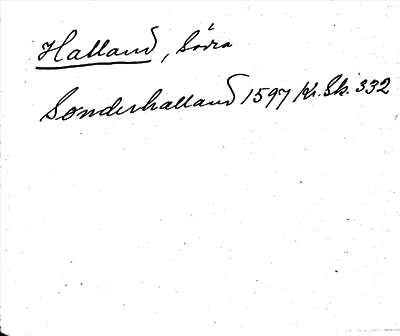 Halland, Södra
Sönderhalland 1597 Kr. Sk. 332